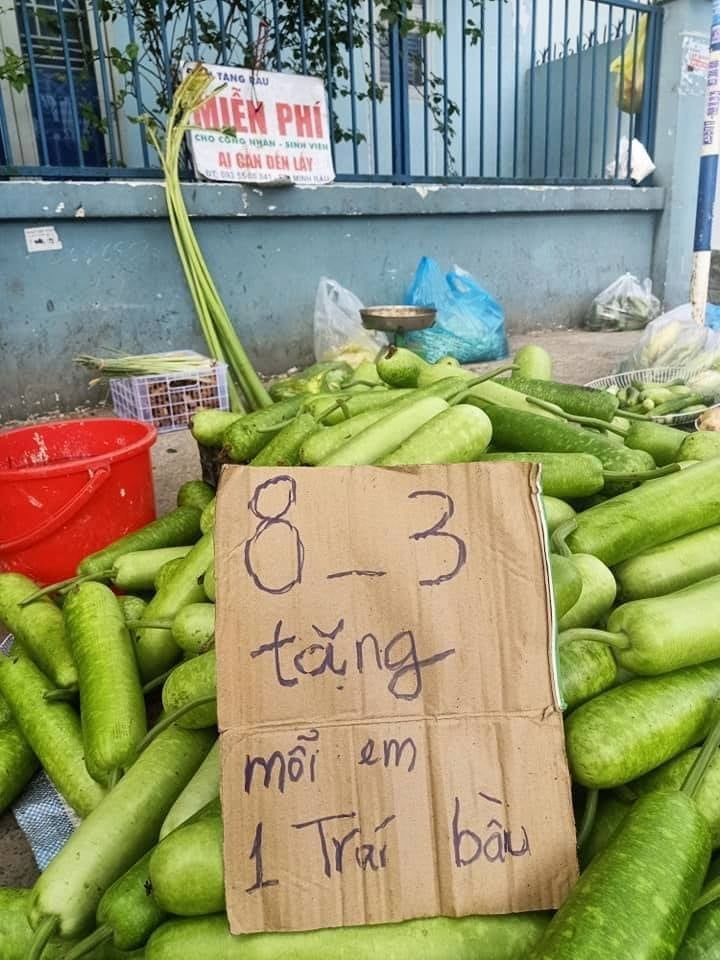 TẶNG BẦU
MIỄN PHÍ
CHO CÔNG NHÂN - SINH VIÊN
AI CẦN ĐẾN LẤY
8_3
tặng
mỗi em
1 Trái bầu